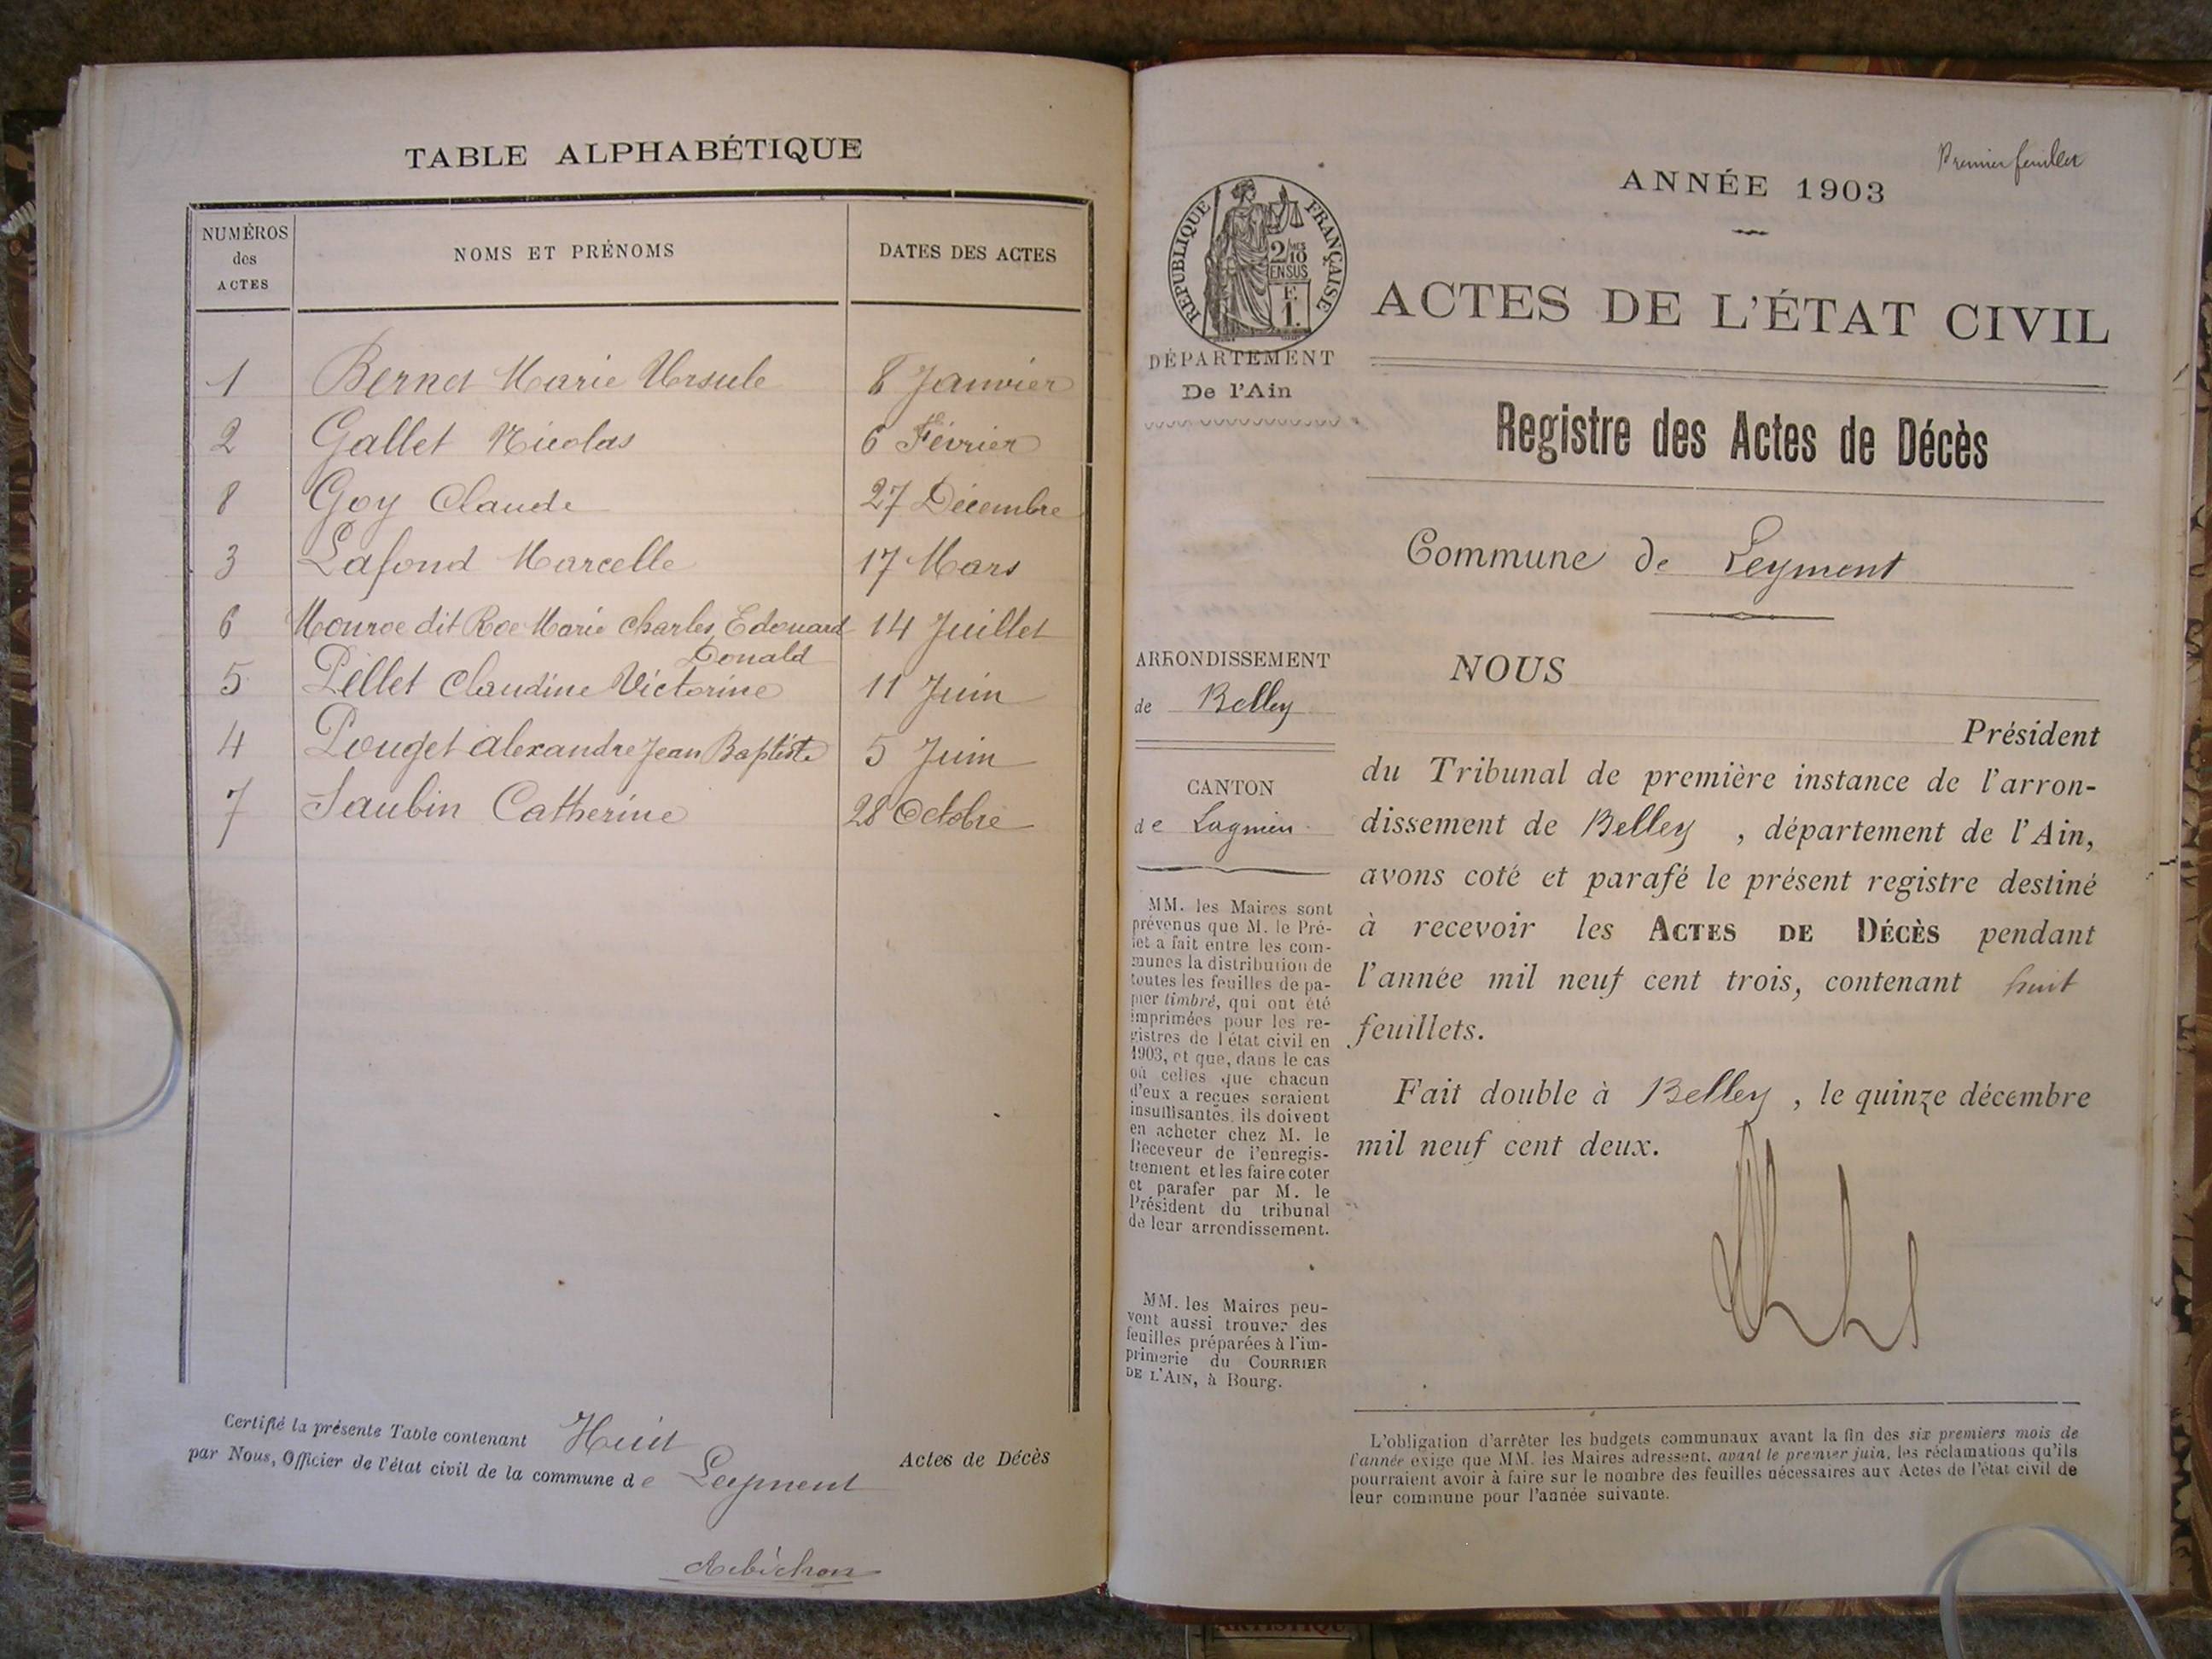 TABLE ALPHABÉTIQUE
NUMÉROS
des
ACTES
NOMS ET PRÉNOMS
DATES DES ACTES
1 Bernet Marie Ursule 8 Janvier
2 Gallet Nicolas 6 Février
8 Goy Claude 27 Décembre
3 Lafond Marcelle 17 Mars
6 Monroe dit Roe Marie Charles Edouard 14 Juillet
Donald
5 Pellet Claudine Victorine 11 Juin
4 Pouget alexandre Jean Baptiste 5 Juin
7 Saubin Catherine 28 Octobre
Certifié la présente Table contenant Huit Actes de Décès
par Nous, Officier de l'état civil de la commune de Leyment
Premier feuillet
ANNÉE 1903
RÉPUBLIQUE FRANÇAISE
2/10
EN SUS
F.
1.
ACTES DE L'ÉTAT CIVIL
DÉPARTEMENT
De l'Ain
Registre des Actes de Décès
Commune de Leyment
ARRONDISSEMENT
de Belley
CANTON
de Lagnieu
MM. les Maires sont
prévenus que M. le Pré-
fet a fait entre les com-
munes la distribution de
toutes les feuilles de pa-
pier timbré, qui ont été
imprimées pour les re-
gistres de l'état civil en
1903, et que, dans le cas
où celles que chacun
d'eux a reçues seraient
insuffisantes, ils doivent
en acheter chez M. le
Receveur de l'enregis-
trement et les faire coter
et parafer par M. le
Président du tribunal
de leur arrondissement.
MM. les Maires peu-
vent aussi trouver des
feuilles préparées à l'im-
primerie du COURRIER
DE L'AIN, à Bourg.
NOUS
Président
du Tribunal de première instance de l'arron-
dissement de Belley , département de l'Ain,
avons coté et parafé le présent registre destiné
à recevoir les ACTES DE DÉCÈS pendant
l'année mil neuf cent trois, contenant huit
feuillets.
Fait double à Belley , le quinze décembre
mil neuf cent deux.
L'obligation d'arrêter les budgets communaux avant la fin des six premiers mois de
l'année exige que MM. les Maires adressent, avant le premier juin, les réclamations qu'ils
pourraient avoir à faire sur le nombre des feuilles nécessaires aux Actes de l'état civil de
leur commune pour l'année suivante.
ARTISTIQU